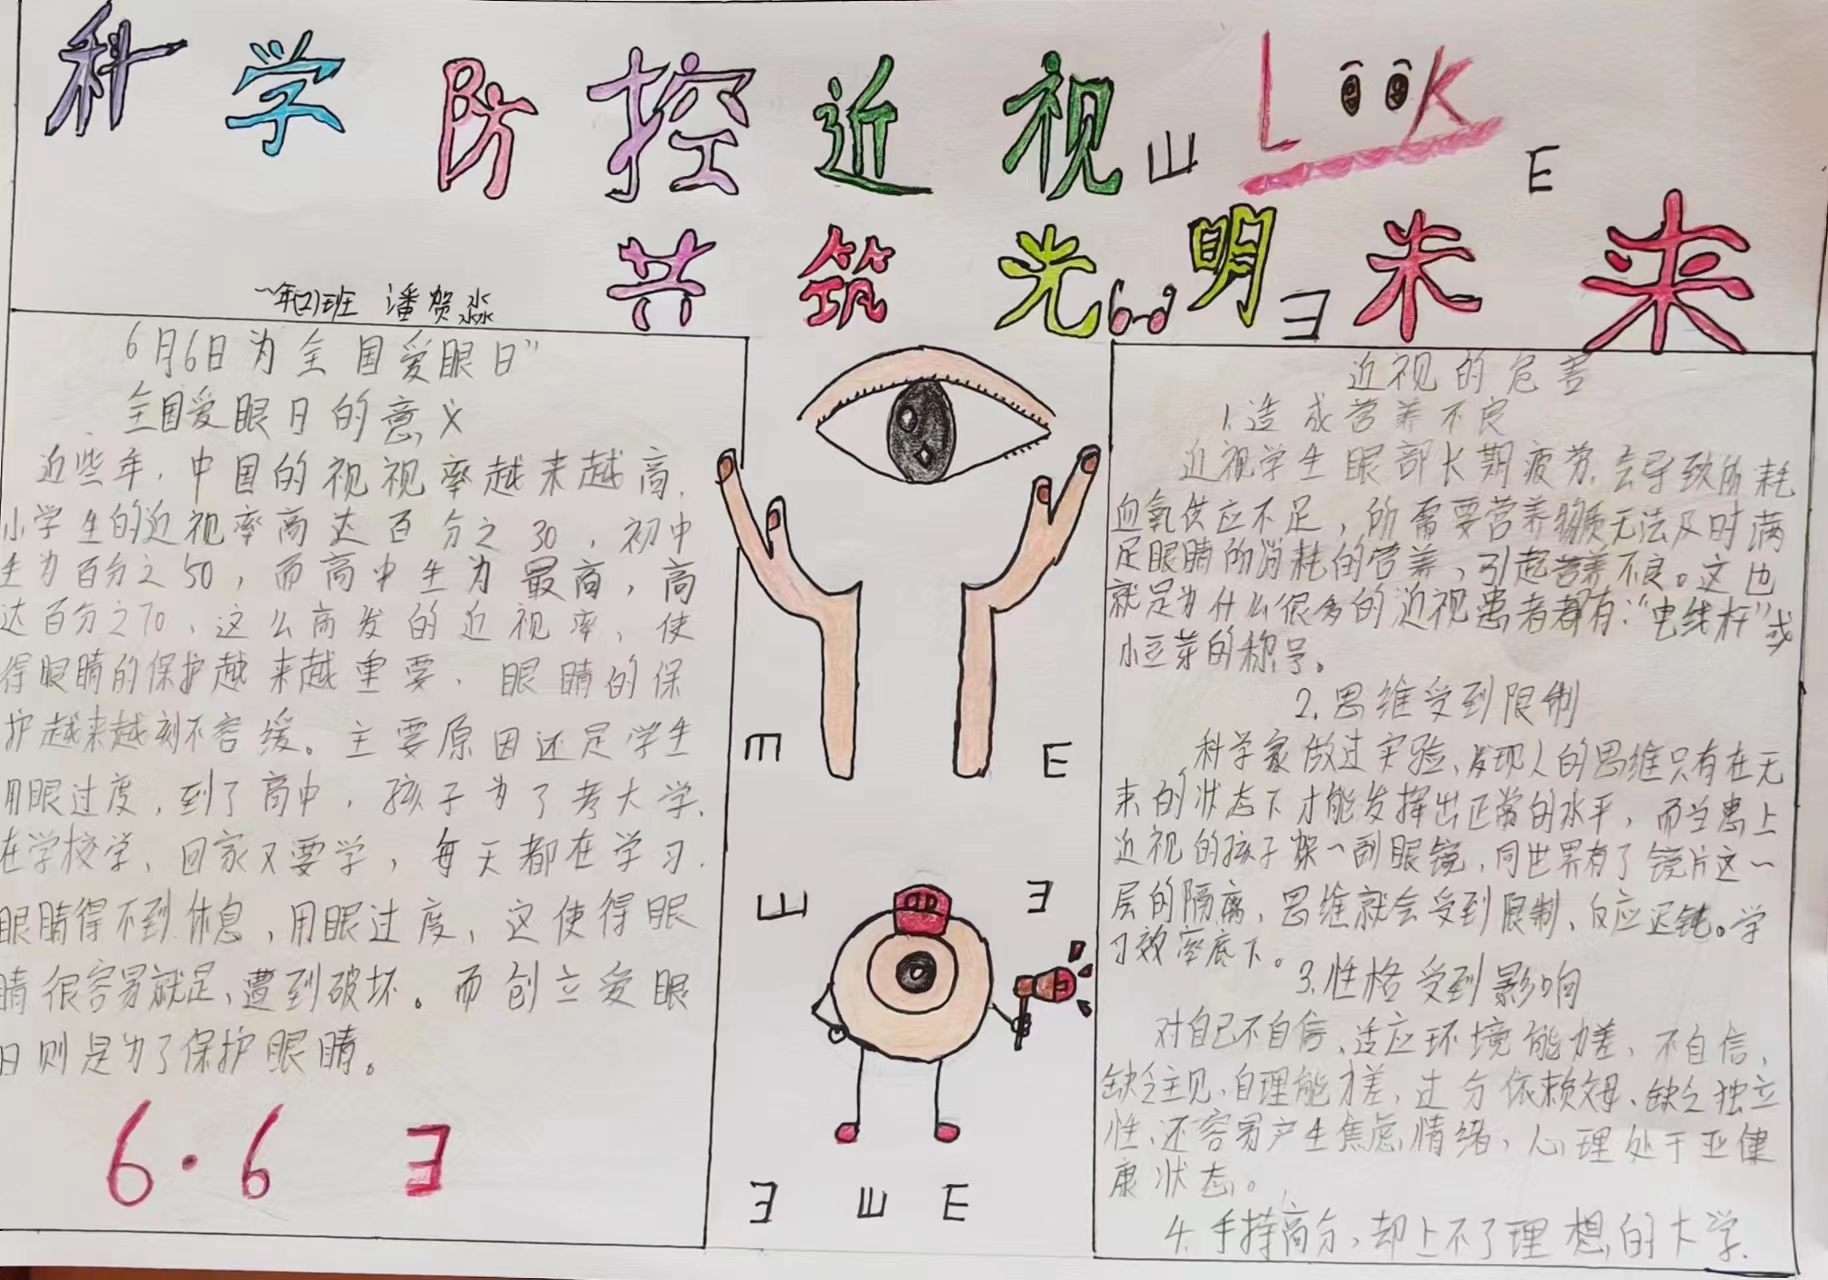 科学防控近视
LOOK
E
E
共筑光明未来
E
一年(2)班 潘贺淼
6月6日为全国爱眼日”
全国爱眼日的意义
近些年，中国的视视率越来越高，
小学生的近视率高达百分之30，初中
生为百分之50，而高中生为最高，高
达百分之70、这么高发的近视率，使
得眼睛的保护越来越重要、眼睛的保
护越来越刻不容缓。主要原因还是学生
用眼过度，到了高中，孩子为了考大学，
在学校学、回家又要学，每天都在学习，
眼睛得不到休息，用眼过度，这使得眼
睛很容易就是、遭到破坏。而创立爱眼
日则是为了保护眼睛。
6·6 E
E E
E E
E E E
近视的危害
1.造成营养不良
近视学生眼部长期疲劳，会导致所耗
血氧供应不足，所需要营养物质无法及时满
足眼睛所消耗的营养，引起营养不良。这也
就是为什么很多的近视患者都有：“电线杆”或
小豆芽的称号。
2.思维受到限制
科学家做过实验，发现人的思维只有在无
来的状态下才能发挥出正常的水平，而当患上
近视的孩子架一副眼镜，同世界有了镜片这一
层的隔离，思维就会受到限制、反应迟钝。学
习效率底下。
3.性格受到影响
对自己不自信、适应环境能力差，不自信，
缺乏主见、自理能力差，过分依赖父母、缺乏独立
性、还容易产生焦虑情绪，心理处于亚健
康状态。
4.手持高分，却上不了理想的大学.